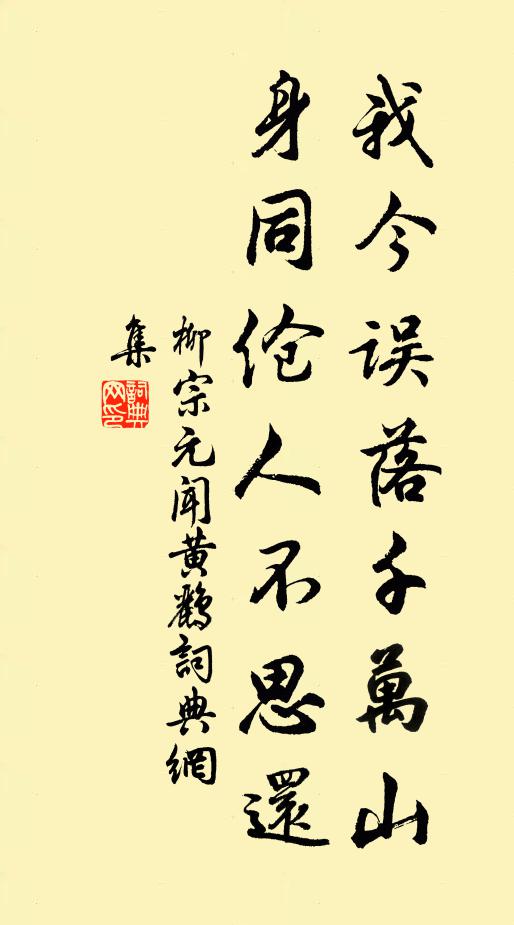 我今误落千萬山
身同伧人不思還
柳宗元闻黄鹂詞典網
集
詞典
网印